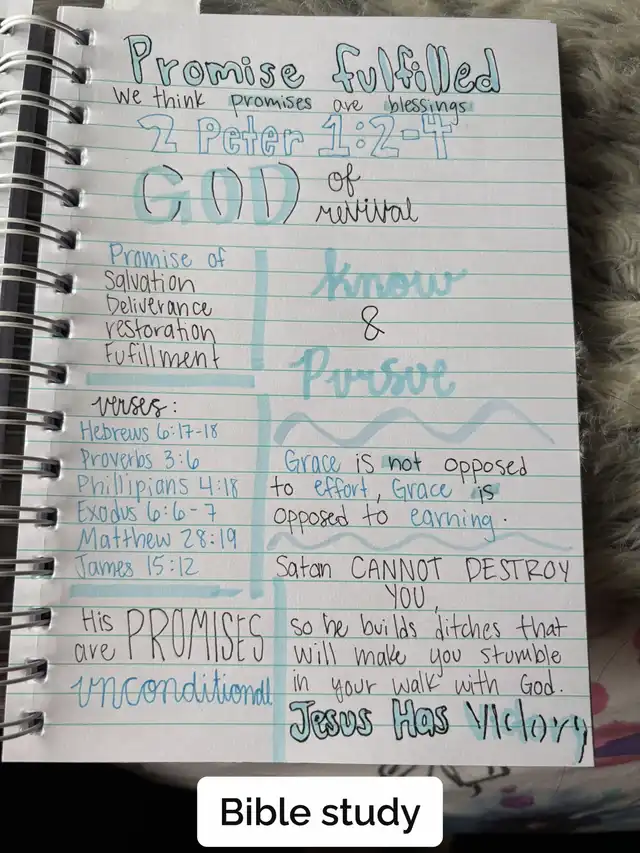 Promise fulfilled
We think promises are blessings
2 Peter 1:2-4
GOD of revival
Promise of
Salvation
Deliverance
restoration
Fufillment
Know
&
Pursue
verses:
Hebrews 6:17-18
Proverbs 3:6
Phillipians 4:18
Exodus 6:6-7
Matthew 28:19
James 15:12
Grace is not opposed
to effort, Grace is
opposed to earning.
Satan CANNOT DESTROY
YOU,
so he builds ditches that
will make you stumble
in your walk with God.
Jesus Has Victory
His
are PROMISES
unconditional
Bible study